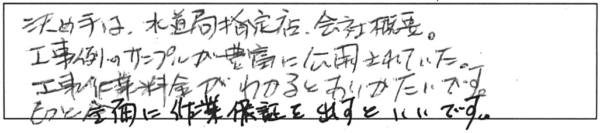 決め手は、水道局指定店、会社概要。
工事例のサンプルが豊富に公開されていた。
工事作業料金がわかるとありがたいです。
もっと全面に作業保証を出すといいです。